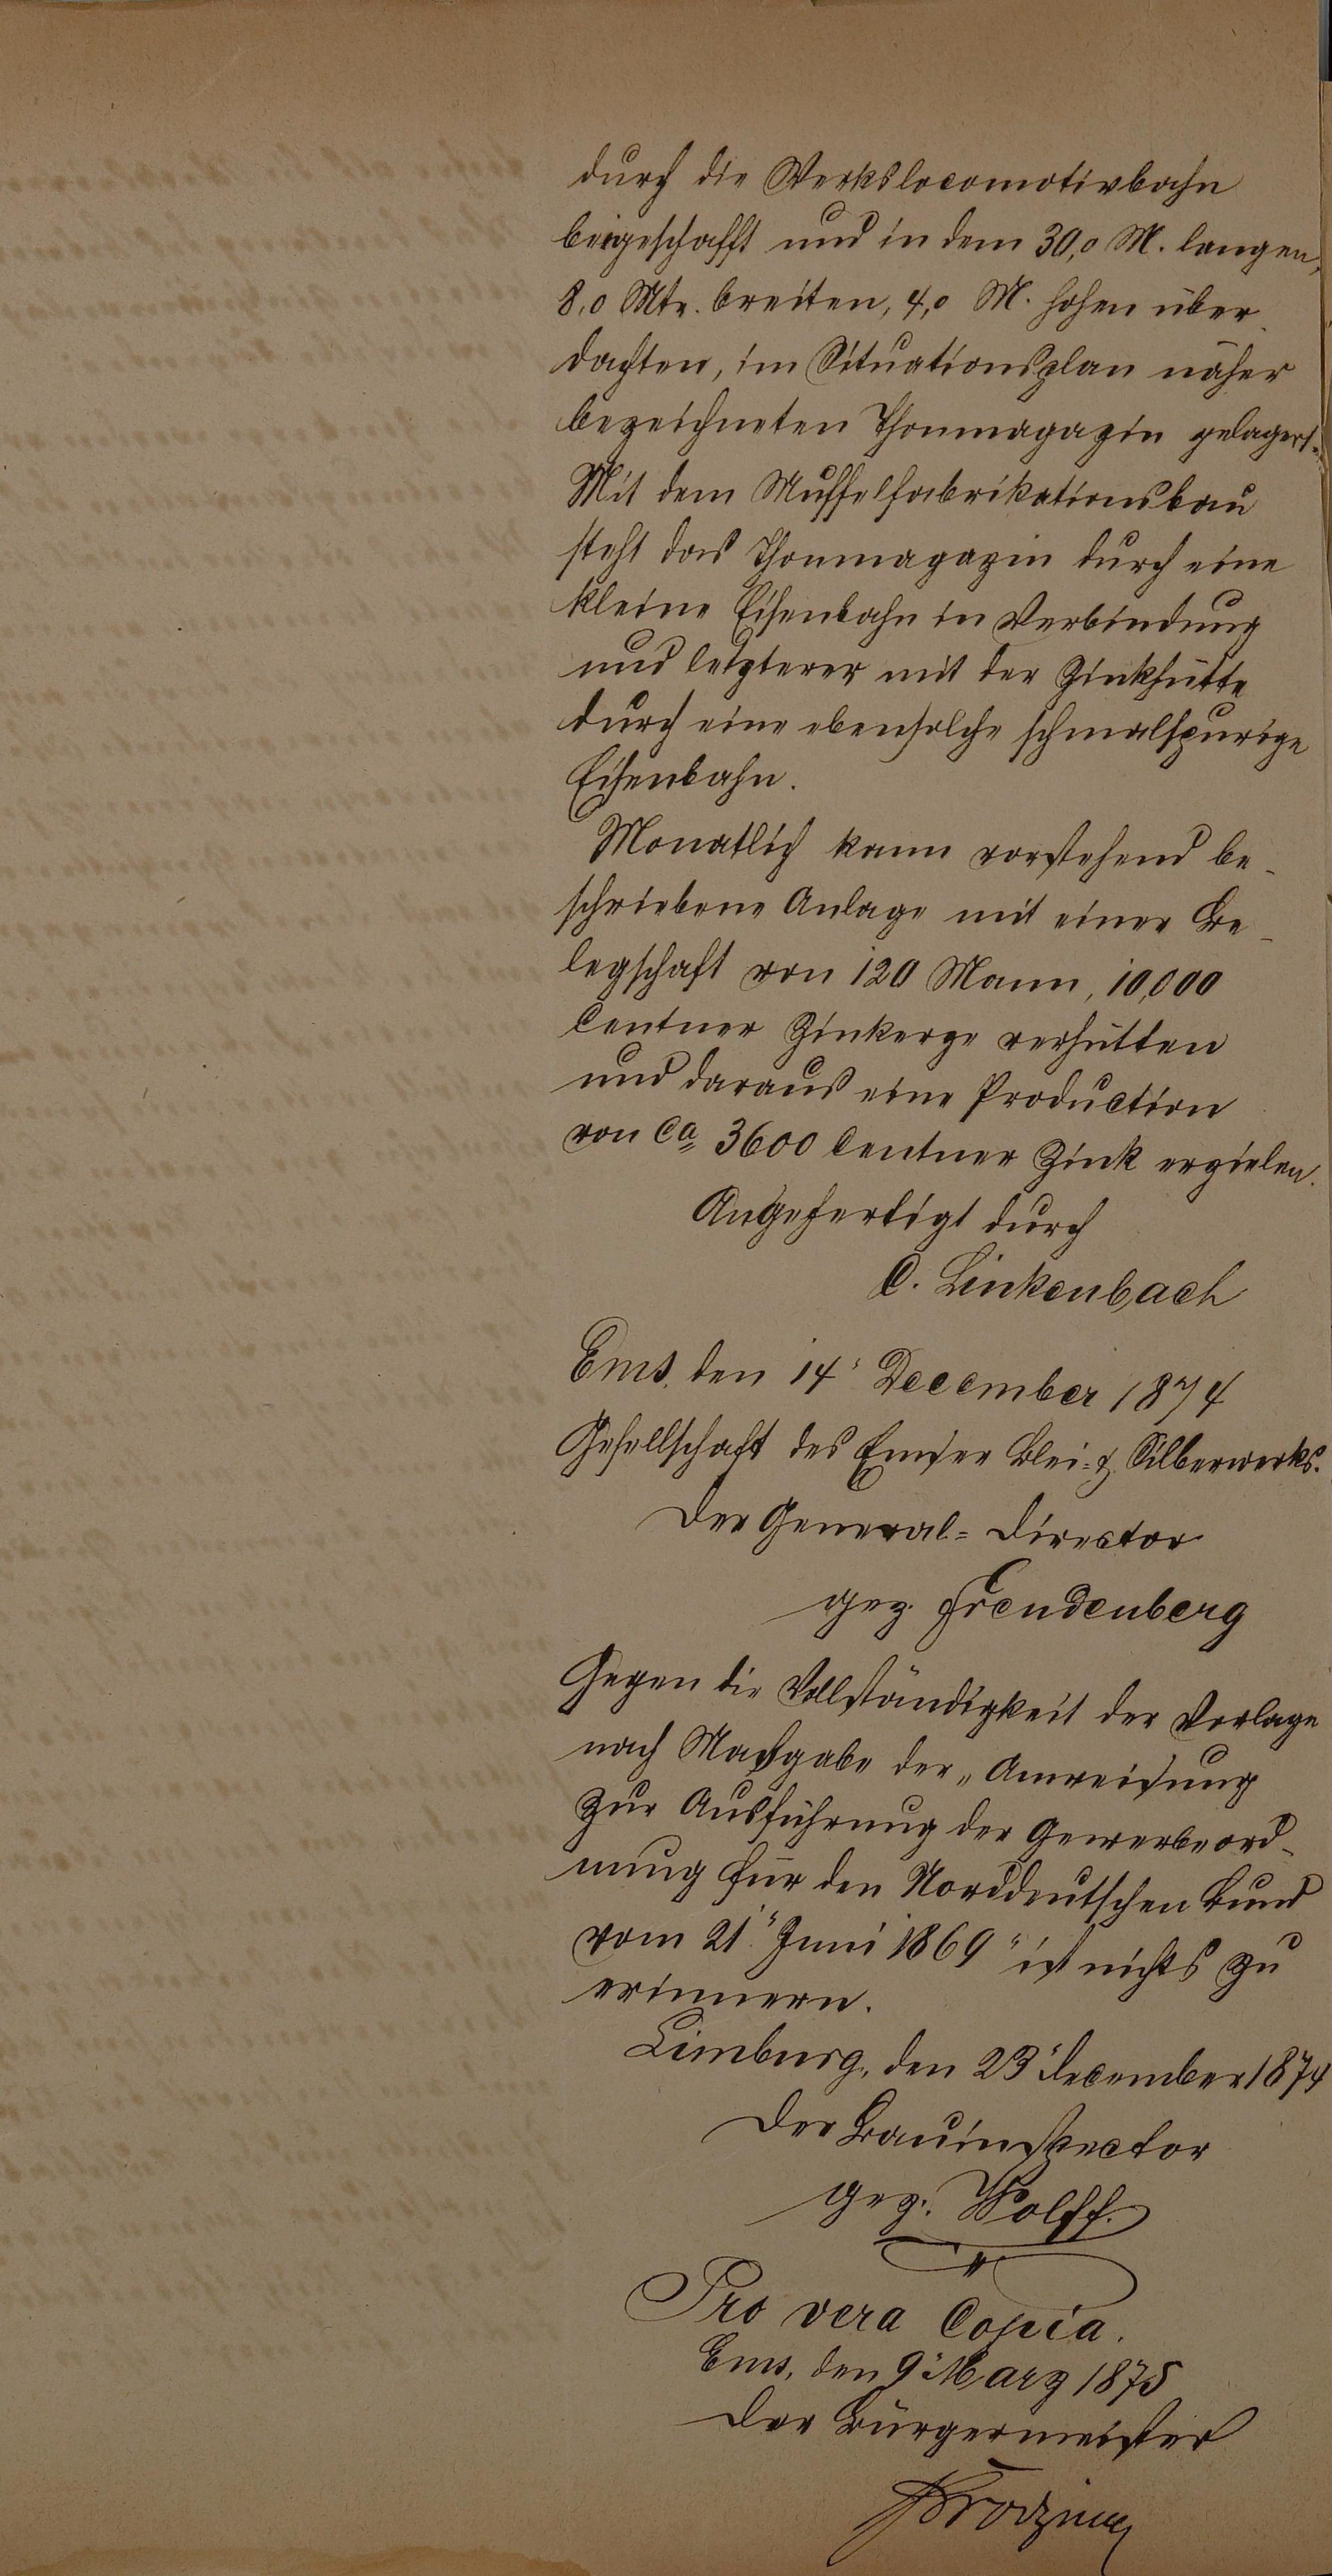 durch die Werkslocomotivbahn
beigeschafft und in dem 30,0 M. langen,
8,0 Mtr. breiten, 4,0 M. hohen über
dachten, im Situationsplan näher
bezeichneten Thonmagazin gelagert.
Mit dem Muffelfabrikationsbau
steht das Thonmagazin durch eine
kleine Eisenbahn in Verbindung
und letzterer mit der Zinkhütte
durch eine ebensolche schmalspurige
Eisenbahn.
Monatlich kann vorstehend be-
schriebene Anlage mit einer Be-
legschaft von 120 Mann, 10,000
Centner Zinkerze verhütten
und daraus eine Production
von ca 3600 Centner Zink erzielen.
Angefertigt durch
C. Linkenbach
Ems, den 14" December 1874
Gesellschaft des Emser Blei- & Silberwerks.
Der General-Director
gez. Freudenberg
Gegen die Vollständigkeit der Vorlage
nach Maßgabe der "Anweisung
zur Ausführung der Gewerbeord-
nung für den Norddeutschen Bund
vom 21" Juni 1869" ist nichts zu
erinnern.
Limburg, den 23" December 1874
Der Bauinspector
gez. Wolff.
Pro vera Copia.
Ems, den 9" März 1875
Der Bürgermeister